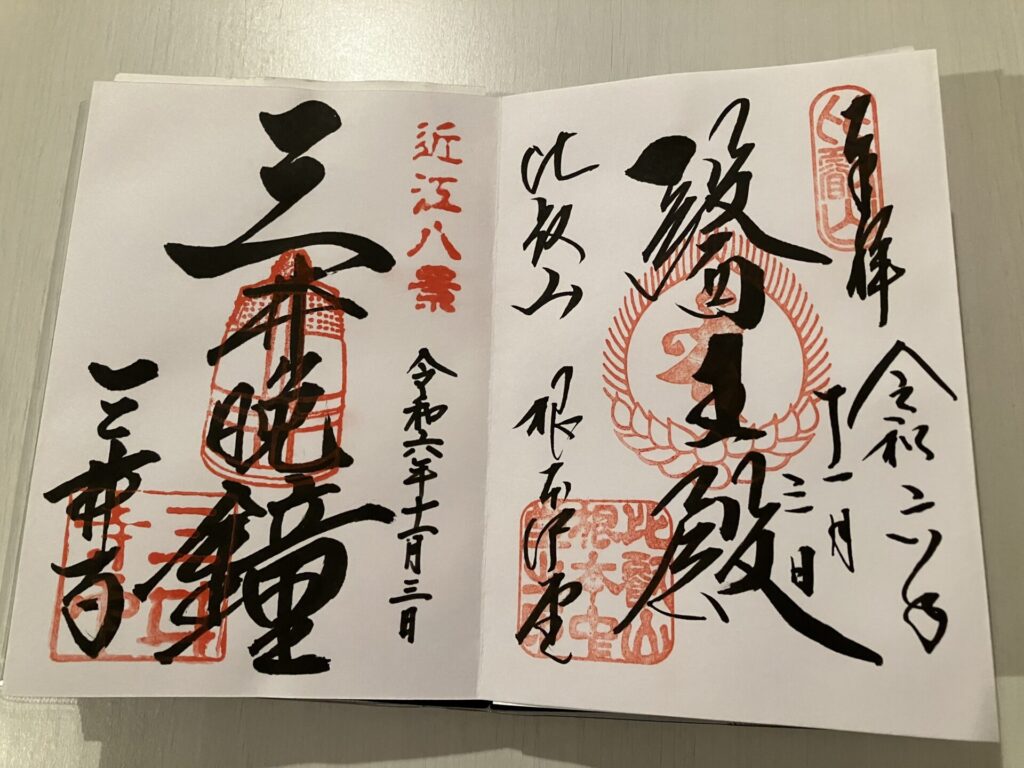 奉拝
比叡山
令和六年
十一月
三日
醫王殿
比叡山 根本中堂
比叡山
根本中
堂
近江八景
令和六年十一月三日
三井晩鐘
三井寺